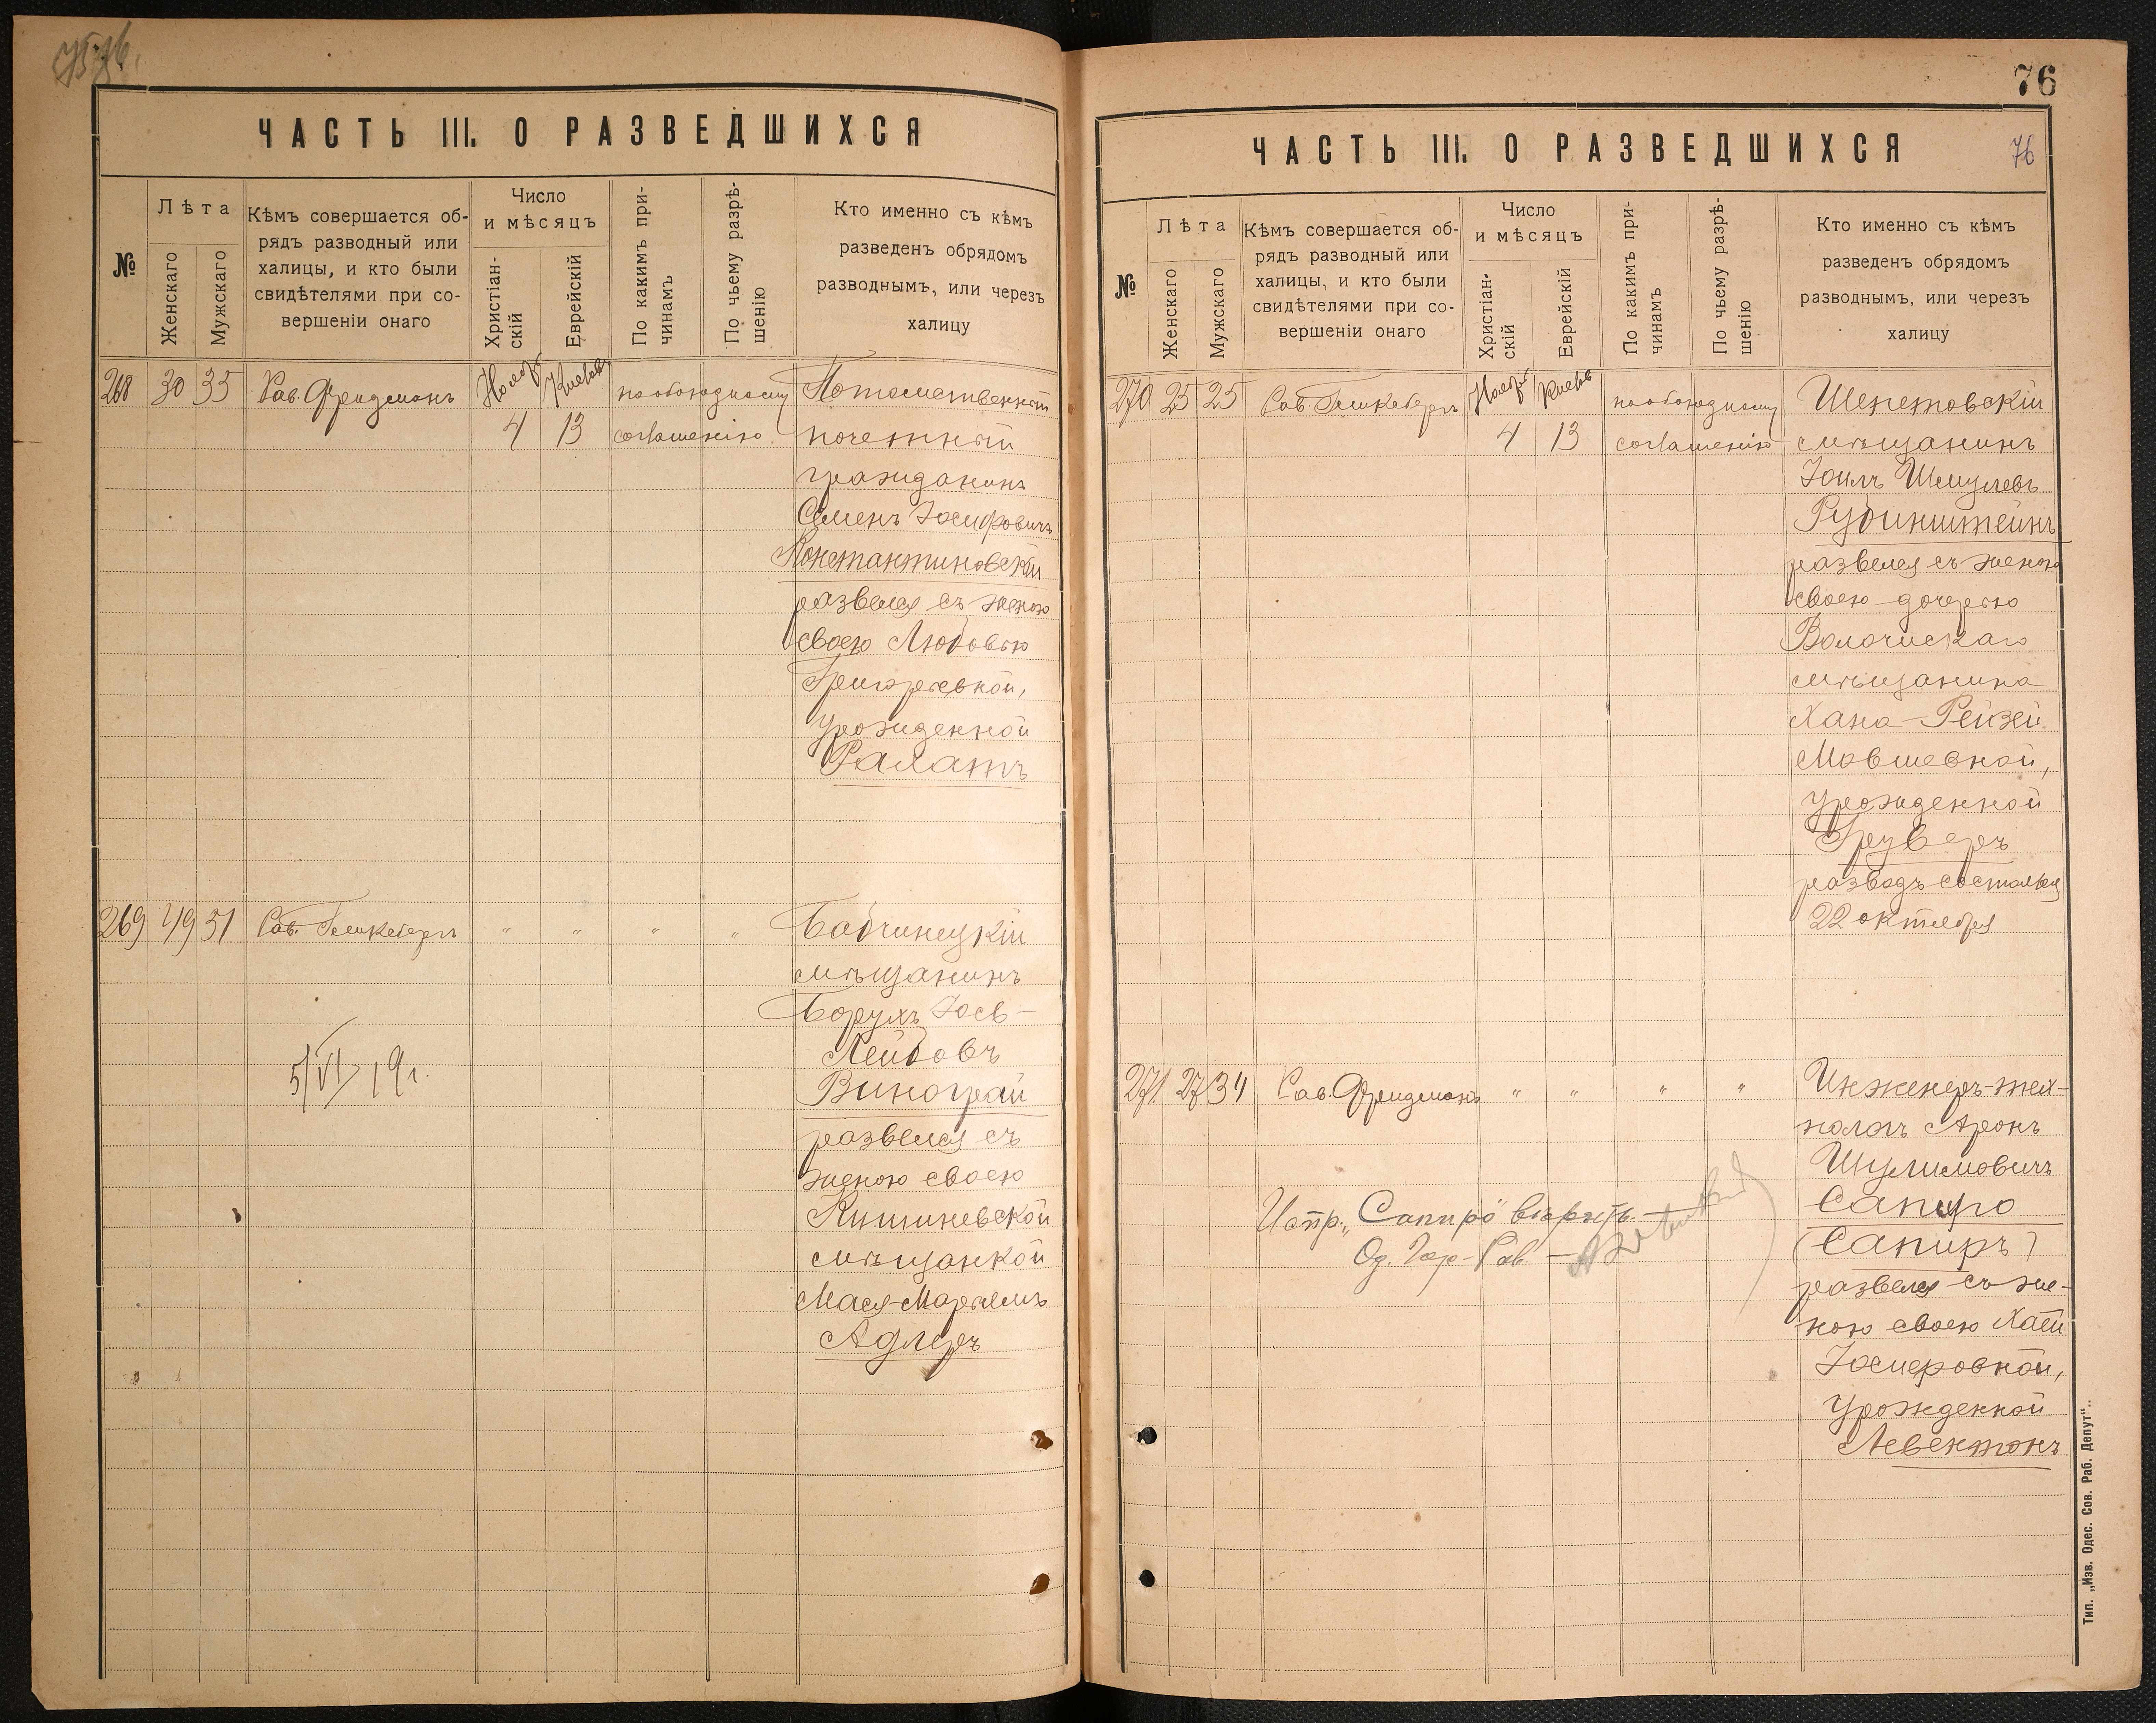 ЧАСТЬ III. О РАЗВЕДШИХСЯ
№
Лѣта
Женскаго
Мужскаго
Кѣмъ совершается об-
рядъ разводный или
халицы, и кто были
свидѣтелями при со-
вершеніи онаго
Число
и мѣсяцъ
Христіан-
скій
Еврейскій
По какимъ при-
чинамъ
По чьему разрѣ-
шенію
Кто именно съ кѣмъ
разведенъ обрядомъ
разводнымъ, или черезъ
халицу
268 30 35 Рав. Фридманъ Ноябр. Кислевъ по обоюдному
4 13 соглашенію
Потомственный
почетный
гражданинъ
Семенъ Іосифовичъ
Константиновскій
развелся съ женою
своею Любовью
Григорьевной,
урожденной
Галантъ
269 49 51 Рав. " " " "
Бабчинецкій
мѣщанинъ
Борухъ Іось-
Лейбовъ
Виноград
развелся съ
женою своею
Кишиневской
мѣщанкой
Мася-Марьямъ
Адлеръ
5/VI 19 г.
76
ЧАСТЬ III. О РАЗВЕДШИХСЯ
76
№
Лѣта
Женскаго
Мужскаго
Кѣмъ совершается об-
рядъ разводный или
халицы, и кто были
свидѣтелями при со-
вершеніи онаго
Число
и мѣсяцъ
Христіан-
скій
Еврейскій
По какимъ при-
чинамъ
По чьему разрѣ-
шенію
Кто именно съ кѣмъ
разведенъ обрядомъ
разводнымъ, или черезъ
халицу
270 25 25 Рав. Ноябр. Кислев по обоюдному
4 13 соглашенію
Шепетовскій
мѣщанинъ
Іоилъ Шмулевъ
Рубинштейнъ
развелся съ женою
своею дочерью
Волочискаго
мѣщанина
Хана-Рейзей
Мовшевной,
урожденной
Груверъ
разводъ состоялся
22 октября
271 27 34 Рав. Фридманъ " " " "
Инженеръ-тех-
нологъ Аронъ
Шулимовичъ
Сапиро
(Сапиръ)
развелся съ же-
ною своею Хаей
Іосифовной,
урожденной
Левентонъ
Испр. „Сапиро" вѣрить.
Од. Гор. Рав. —
Тип. „Изв. Одес. Сов. Раб. Депут".